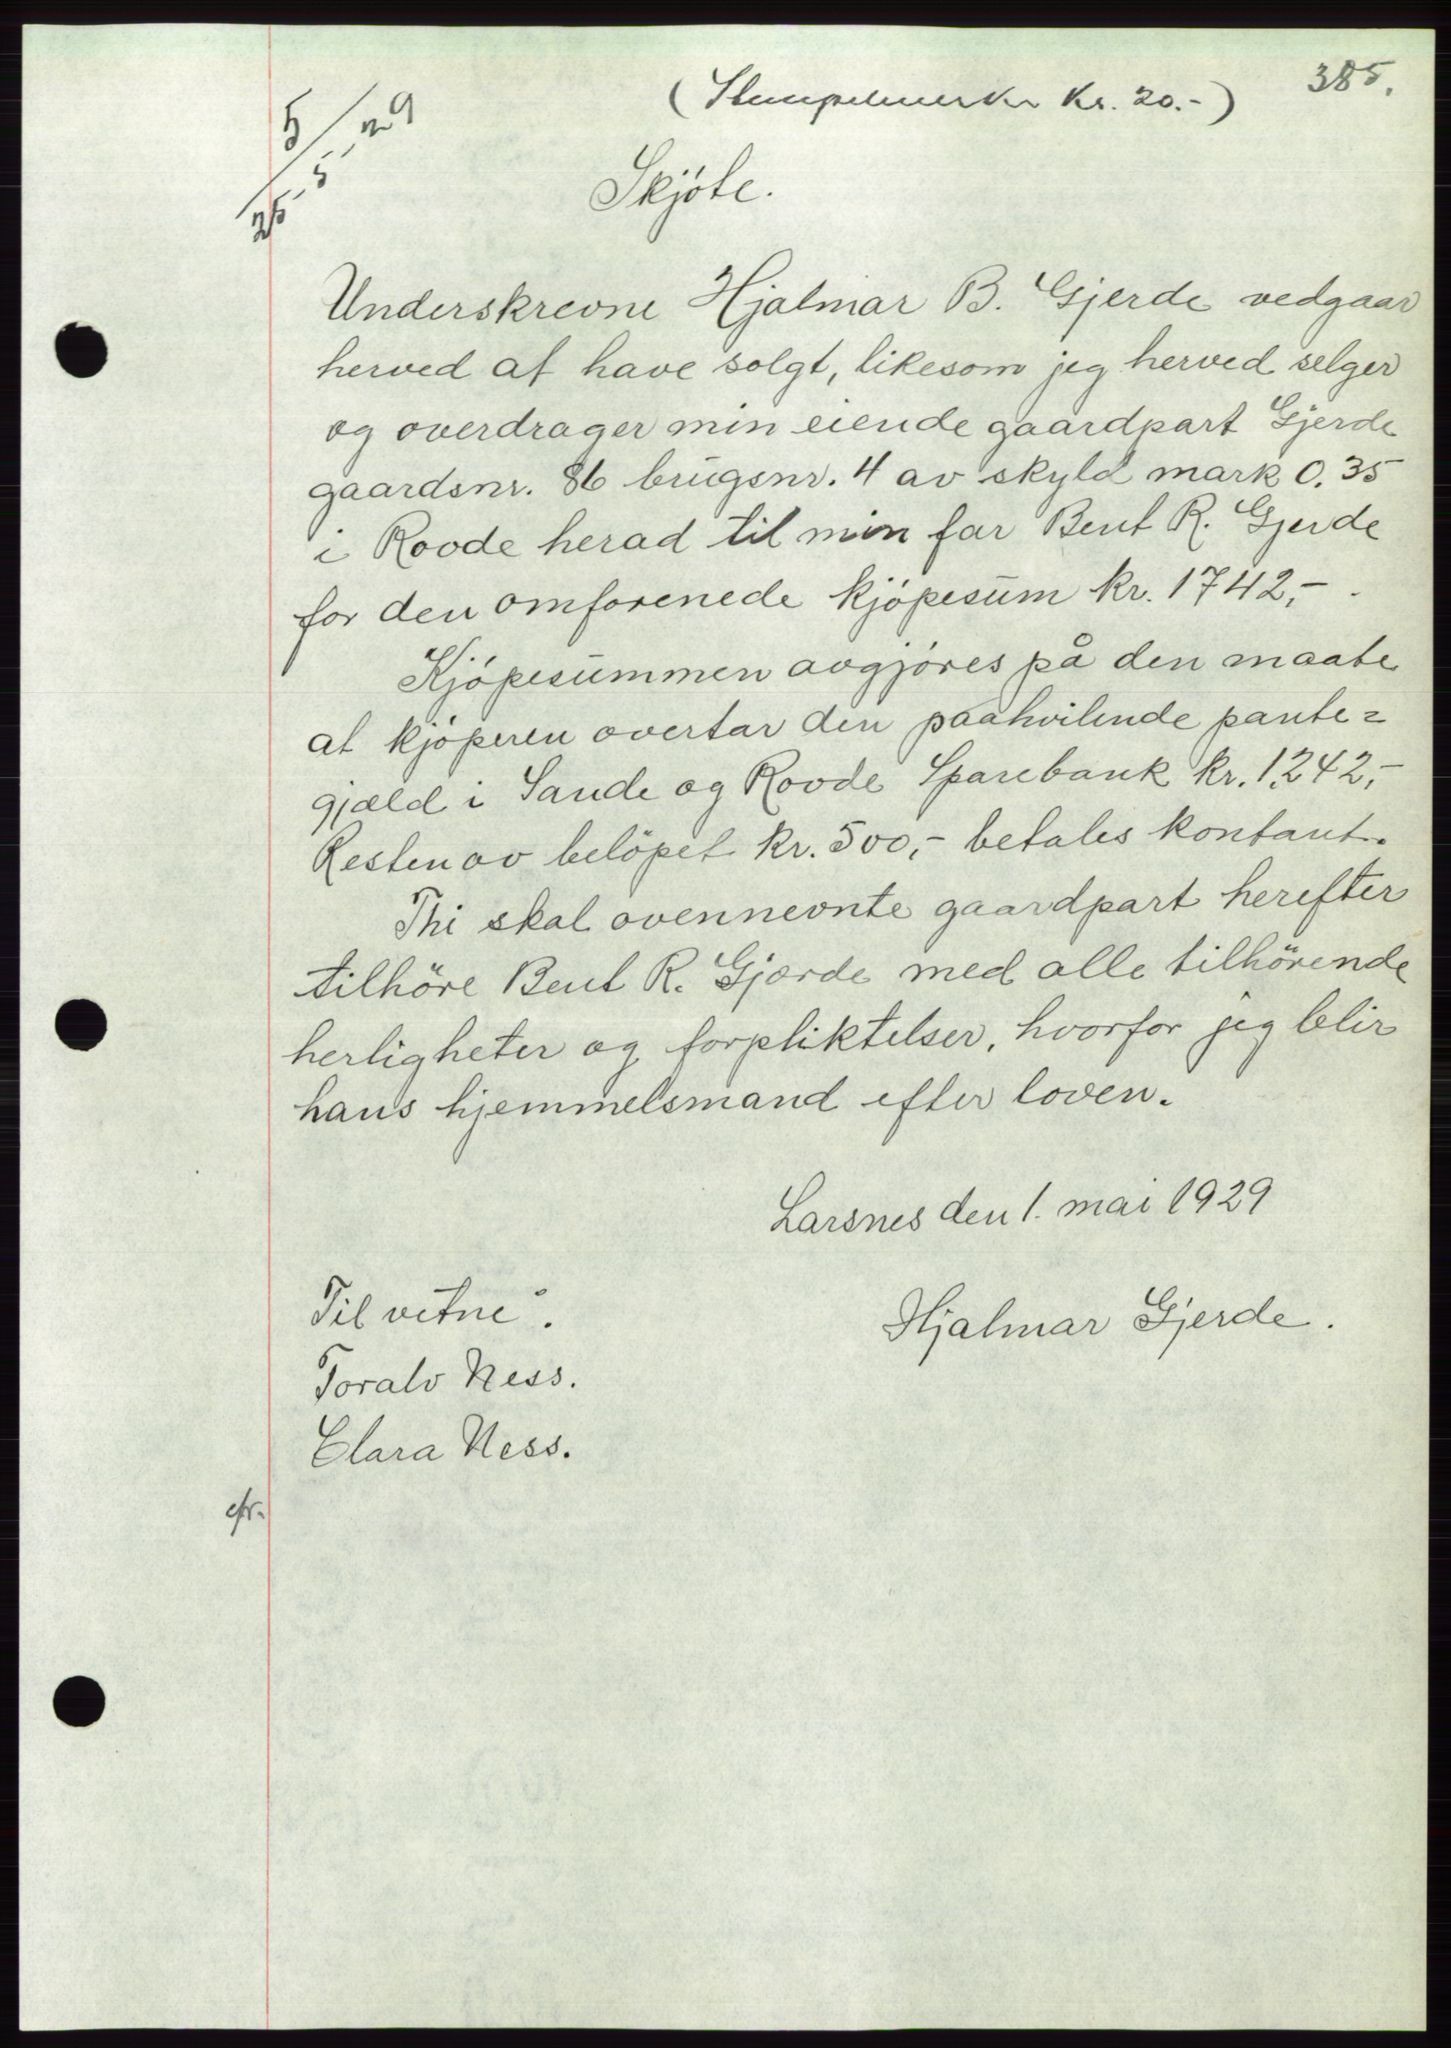 385.
(Stempelmerker Kr. 20.-)
Skjöte.
Underskrevne Hjalmar B. Gjerde vedgaar
herved at have solgt, likesom jeg herved selger
og overdrager min eiende gaardpart Gjerde
gaardsnr. 86 brugsnr. 4 av skyld mark 0.35
i Rovde herad til min far Bent R. Gjerde
for den omforenede kjöpesum kr. 1742,-.
Kjöpesummen avgjöres på den maate
at kjöperen overtar den paahvilende pante=
gjæld i Sande og Rovde Sparebank kr. 1.242,-
Resten av belöpet kr. 500,- betales kontant.
Thi skal ovennevnte gaardpart herefter
tilhöre Bent R. Gjærde med alle tilhörende
herligheter og forpliktelser, hvorfor jeg blir
hans hjemmelsmand efter loven.
Larsnes den 1. mai 1929
Til vitne:
Hjalmar Gjerde.
Toralv Ness.
Clara Ness.